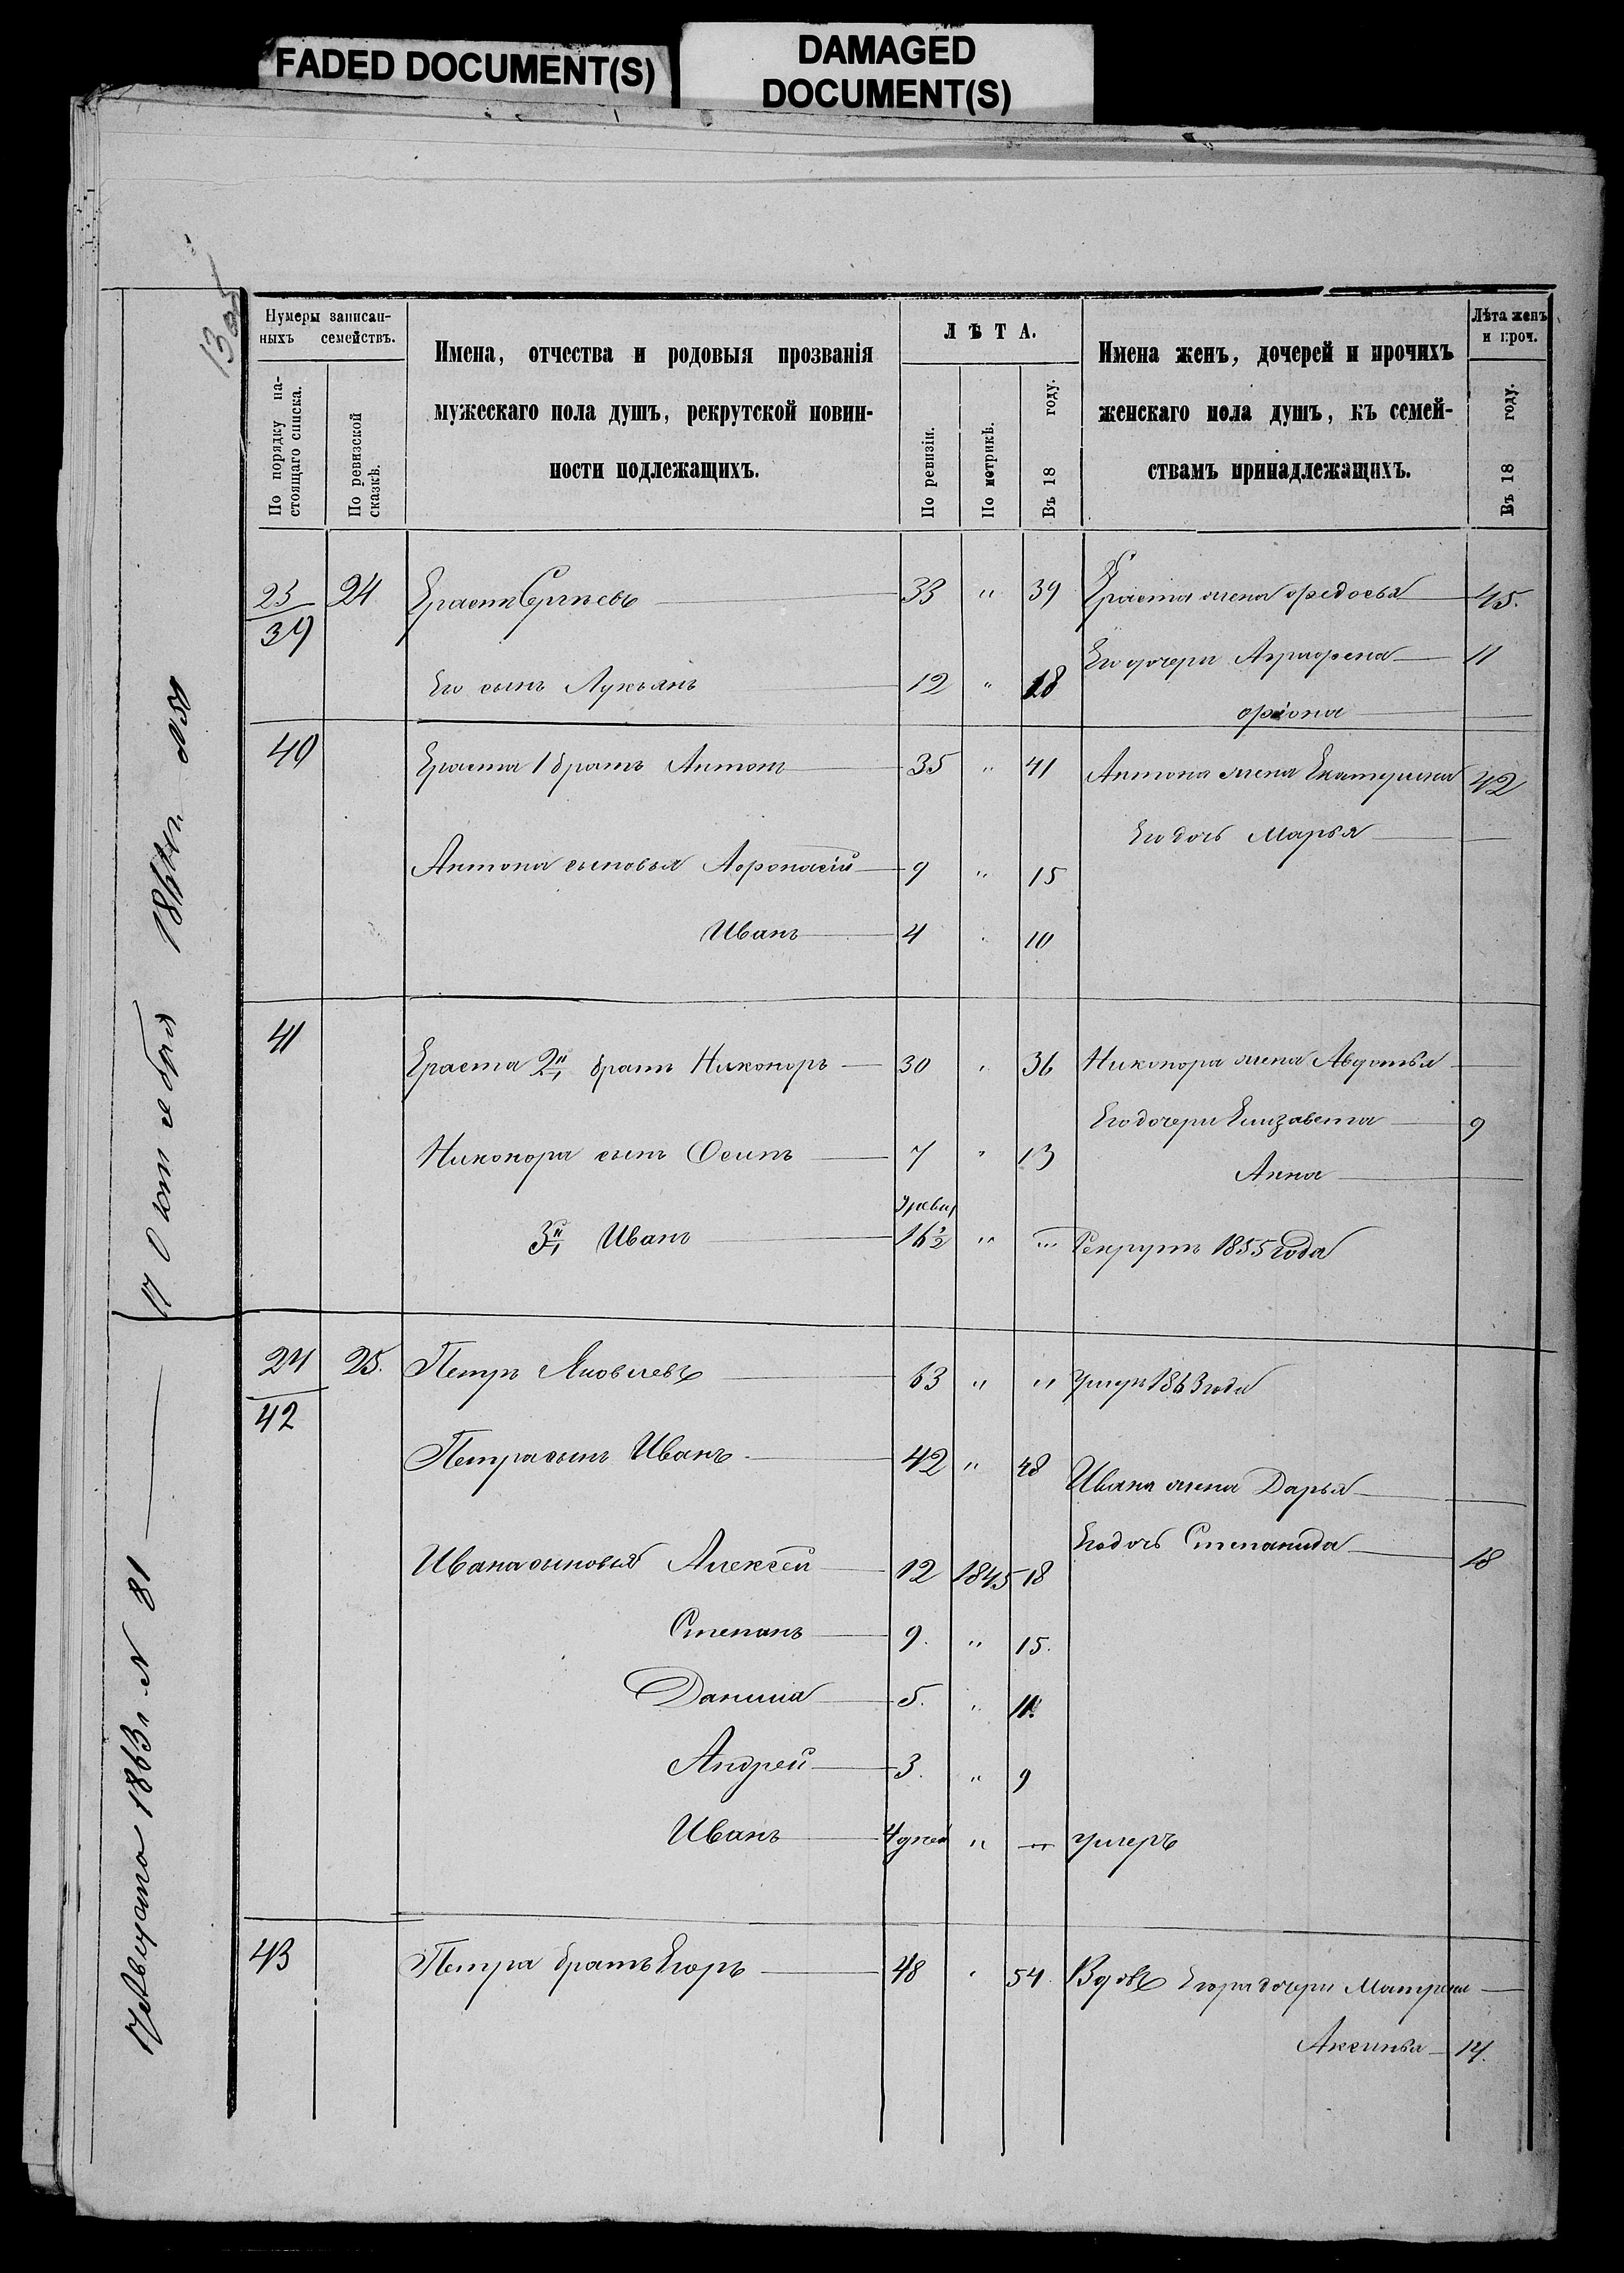 FADED DOCUMENT(S)
DAMAGED
DOCUMENT(S)
Нумеры записан-
ныхъ семействъ.
По порядку на-
стоящаго списка.
По ревизской
сказкѣ.
Имена, отчества и родовыя прозванія
мужескаго пола душъ, рекрутской повин-
ности подлежащихъ.
ЛѢТА.
По ревизіи.
По метрикѣ.
Въ 18 году.
Имена женъ, дочерей и прочихъ
женскаго пола душъ, къ семей-
ствамъ принадлежащихъ.
Лѣта женъ
и проч.
Въ 18 году.
23 24 Ерастъ Сергѣевъ 33 " 39 Ераста жена Ѳедосья 45.
39
Его дочери Аграфена 11
Его сынъ Лукьянъ 12 " 18
40 Ераста 1 братъ Антонъ 35 " 41 Антона жена Екатерина 42
Его дочь Марья
Антона сыновья Афонасій 9 " 15
Иванъ 4 " 10
41 Ераста 2й братъ Никоноръ 30 " 36 Никонора жена Авдотья
Его дочери Елизавета 9
Никонора сынъ Осипъ 7 " 13
Анна
3й Иванъ 16½ " " Рекрутъ 1855 года
24 25. Петръ Яковлевъ 63 " " умеръ 1863 года
42
Петра сынъ Иванъ 42 " 48 Ивана жена Дарья
Его дочь Степанида 18
Ивана сыновья Алексѣй 12 1845 18
Степанъ 9. " 15.
Данила 5. " 11.
Андрей 3. " 9
Иванъ 4 дней " " умеръ
43 Петра братъ Егоръ 48 " 54. Вдовъ Егора дочери Матрена
Аксинья 14.
17 Августа 1863 г. N 81
17 Октября